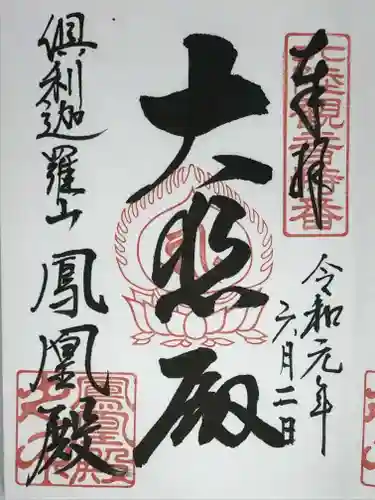 奉拝
令和元年
六月二日
大悲殿
倶利迦羅山
鳳凰殿